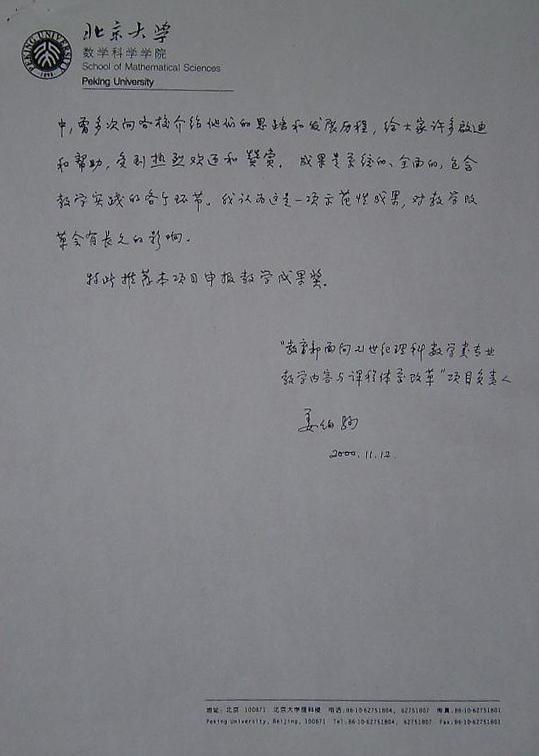 PEKING UNIVERSITY
1898
北京大学
数学科学学院
School of Mathematical Sciences
Peking University
中,曾多次向各校介绍他们的思路和发展历程,给大家许多启迪
和帮助,受到热烈欢迎和赞赏。成果是系统的、全面的,包含
教学实践的各个环节。我认为这是一项示范性成果,对教学改
革会有长久的影响。
特此推荐本项目申报教学成果奖。
"教育部面向21世纪理科数学类专业
教学内容与课程体系改革"项目负责人
姜伯驹
2000.11.12.
地址:北京 100871 北京大学理科楼 电话:86-10-62751804, 62751807 传真:86-10-62751801
Peking University, Beijing, 100871 Tel:86-10-62751804, 62751807 Fax:86-10-62751801